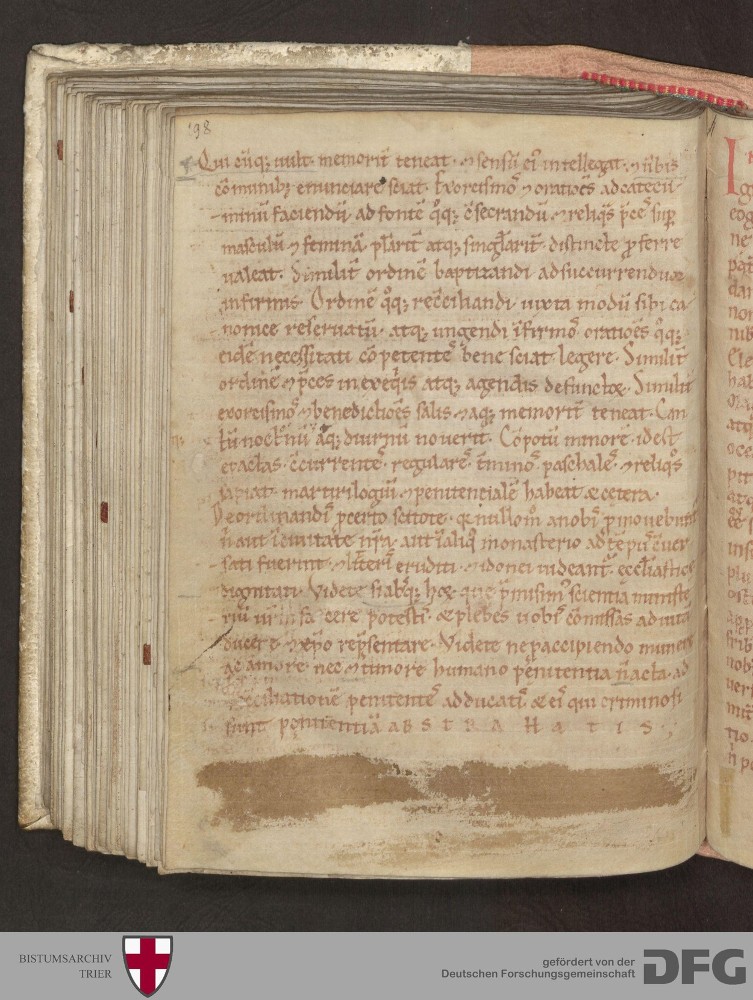 198
Qui cūq; uult memorit̄ teneat ⁊ sensū ei᾽ intellegat ⁊ ūbis
cōmunib; enunciare sciat. Exorcismo᾽ ⁊ oratiōes ad catecu-
minū faciendū, ad fontē q̊q; c̄secrandū ⁊ reliq̄s p̄ce᾽ sup
masculū ⁊ feminā plarit̄ atq; singlarit̄ distincte p̱ferre
ualeat. Similit̄ ordinē baptizandi ad succurrendū
infirmis Ordinē q̊q; recc̄iliandi iuxta modū sibi ca-
nonice reseruatū. atq; ungendi īfirmo᾽ oratiōes q̊q;
eidē necessitati cōpetente᾽ bene sciat legere. Similit̄
ordinē ⁊ p̄ces in exeq̄is atq; agendis defunctoꝝ. Similit̄
exorcismo᾽ ⁊ benedictiōes salis ⁊ aq̨ memorit̄ teneat. Can
tū noct̄nū atq; diurnū nouerit. Cōpotū minore᾽ id est
epactas c̄currente᾽ regulare᾽ t̄mino᾽ paschale᾽ ⁊ reliq̊s
sapiat. martirilogiū ⁊ penitentialē habeat & cetera.
De ordinandi᾽ p̱ certo scitote. q̄ nullom̊ a nobi᾽ p̱mouebunt᾽
n̄ aut ī ciuitate nr̄a. aut ī aliq̊ monasterio ad tēp᾽ c̄uer
sati fuerint ⁊ litteri᾽ eruditi ⁊ idonei uideant᾽ eccl̄iastice
dignitati. Videte si absq; hoc que p̄misim᾽ scientia ministe
riū ur̄m facere potesti᾽ & plebes uobi᾽ cōmissas ad uitā
ducere ⁊ xp̄o rep̄sentare. Videte ne p̱ accipiendo munera
ac amore nec ⁊ timore humano penitentia n̄ acta. ad
recc̄iliationē penitente᾽ adducati᾽ & ei᾽ qui criminosi
sunt penitentiā A B S T R A H A T I S.
BISTUMSARCHIV
TRIER
gefördert von der
Deutschen Forschungsgemeinschaft
DFG